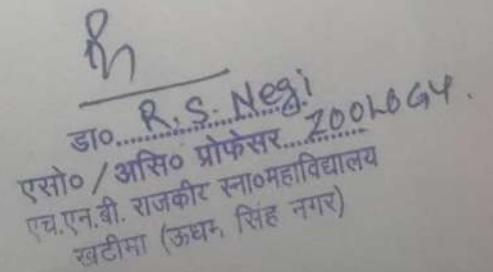 डा०....R.S. Negi
एसो० / असि० प्रोफेसर...ZOOLOGY.
एच.एन.बी. राजकीर स्ना०महाविद्यालय
खटीमा (ऊधम सिंह नगर)